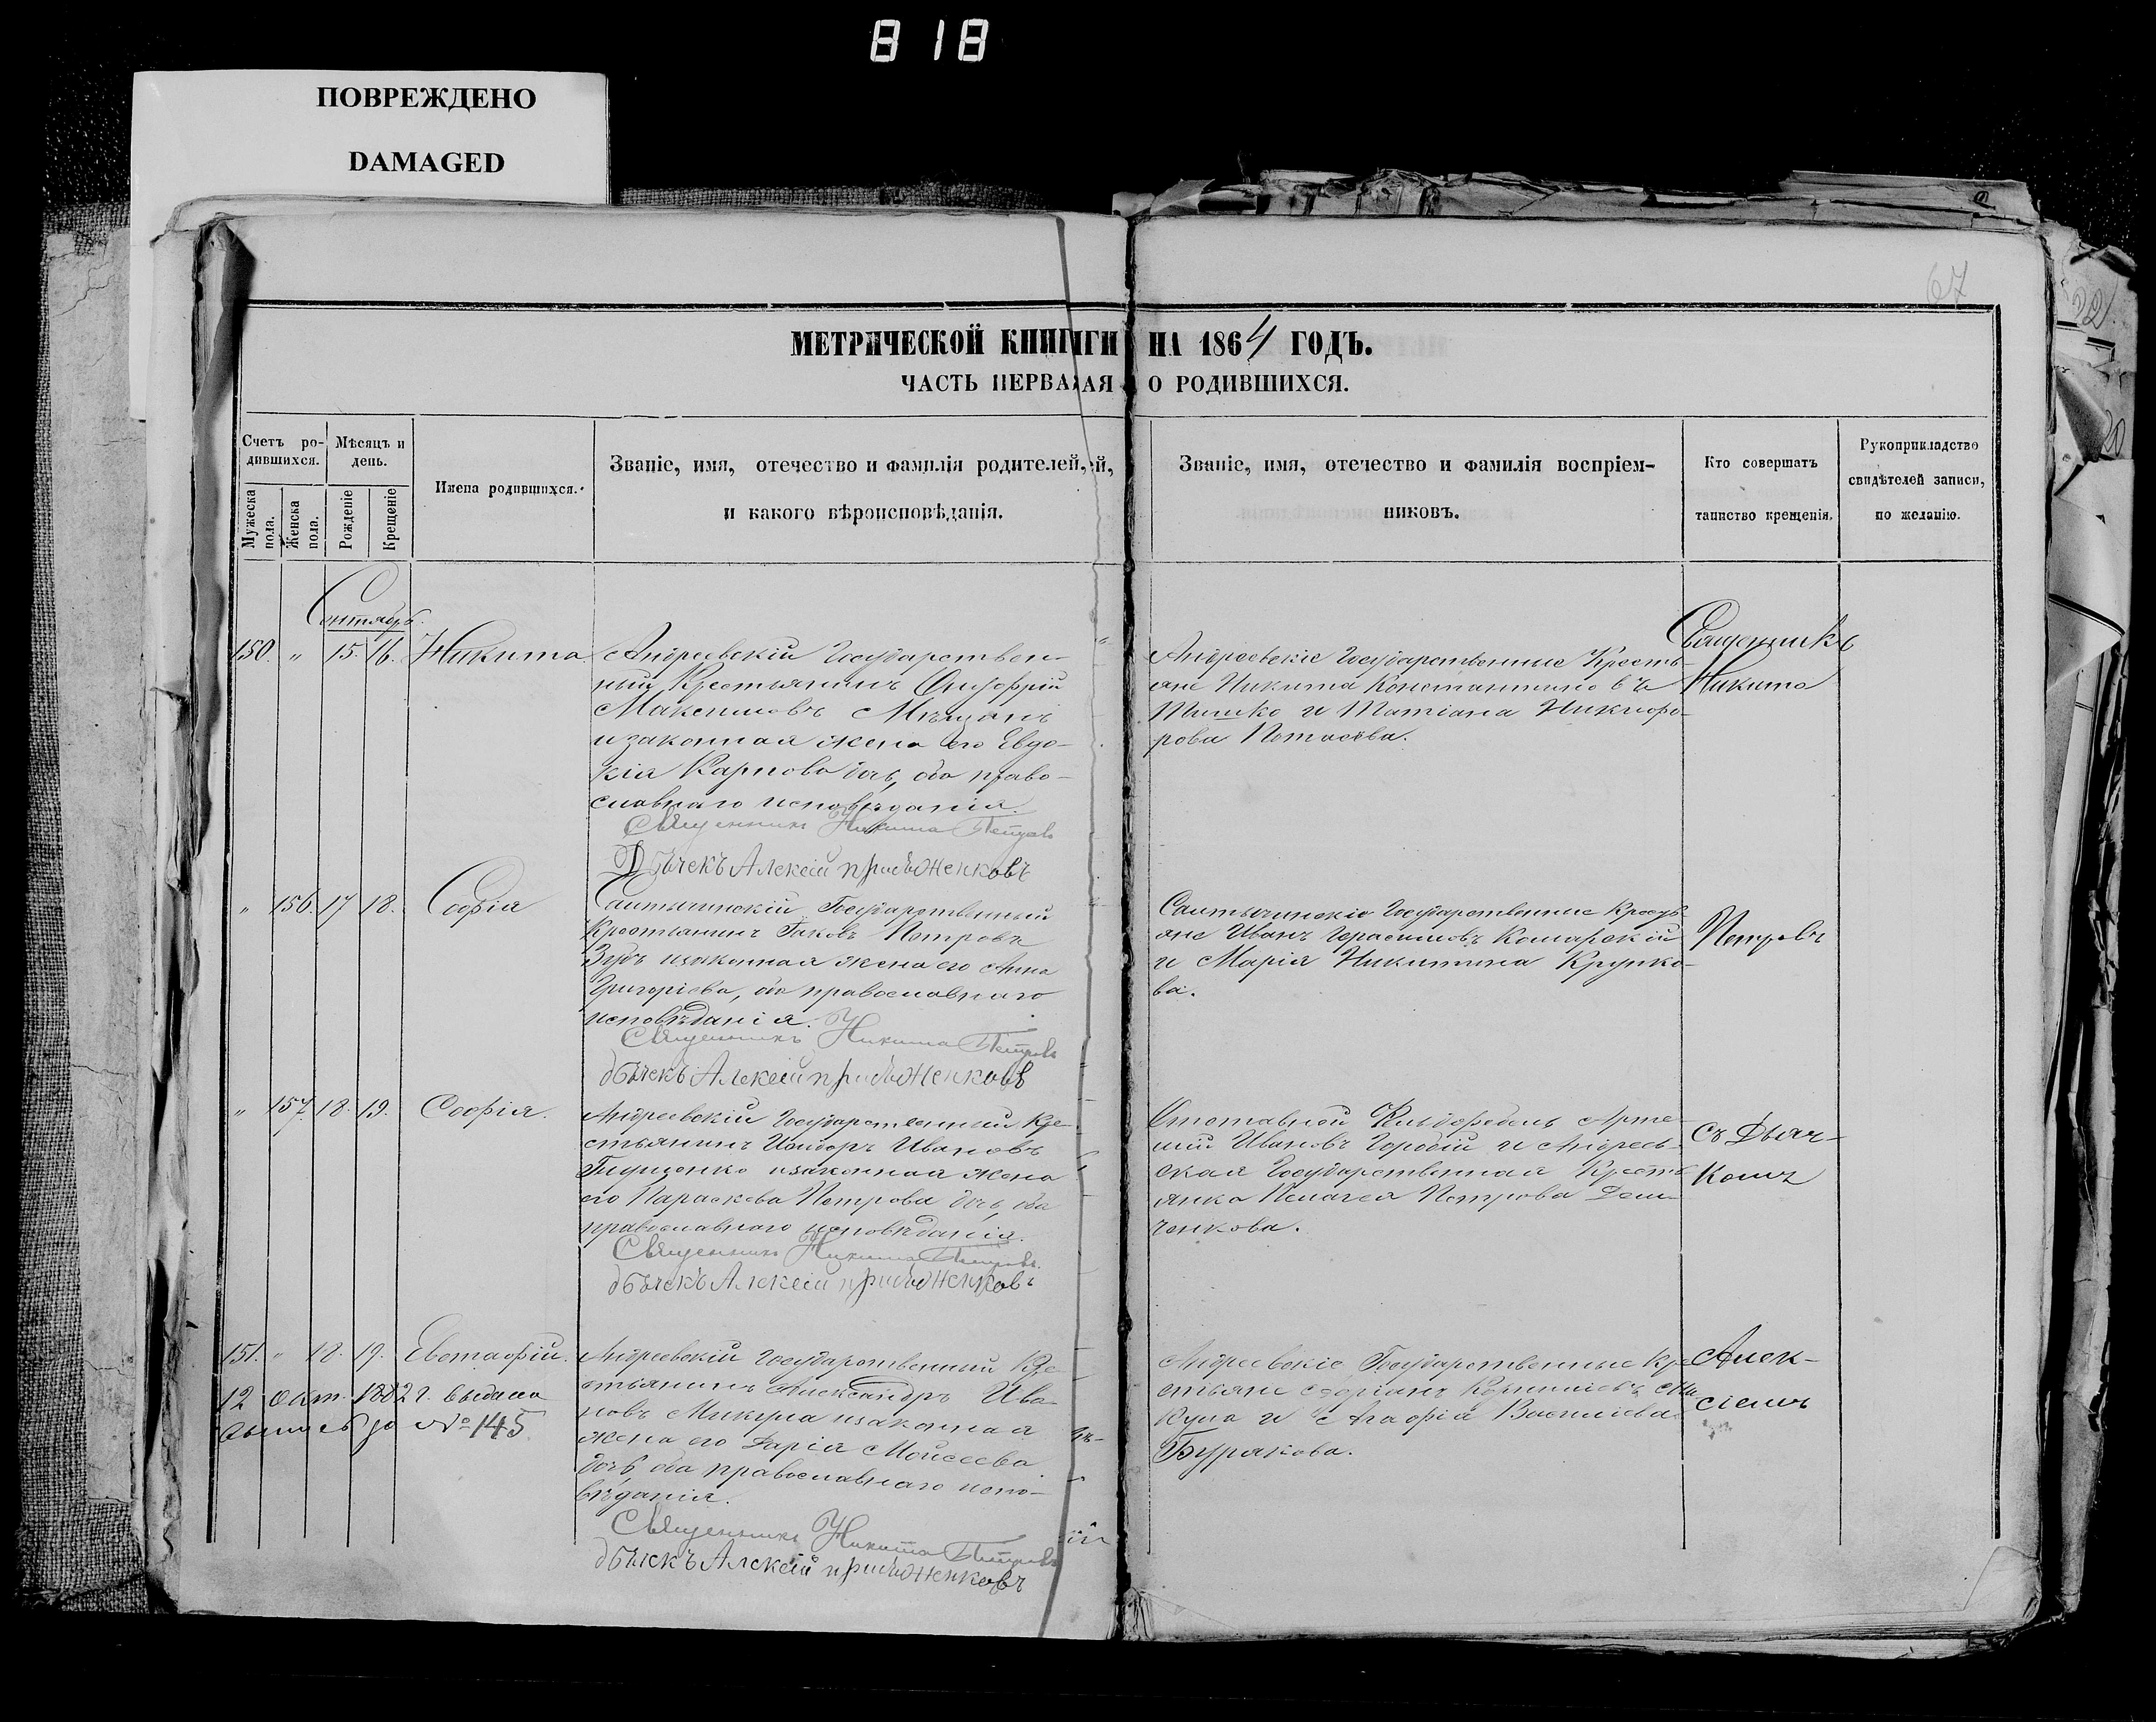 818
ПОВРЕЖДЕНО
DAMAGED
67
22
20
МЕТРИЧЕСКОЙ КНИГИ НА 1864 ГОДЪ.
ЧАСТЬ ПЕРВАЯ О РОДИВШИХСЯ.
Счетъ ро-
дившихся.
Мѣсяцъ и
день.
Мужеска
пола.
Женска
пола.
Рожденіе
Крещеніе
Имена родившихся.
Званіе, имя, отечество и фамилія родителей,
и какого вѣроисповѣданія.
Званіе, имя, отечество и фамилія воспріем-
никовъ.
Кто совершатъ
таинство крещенія.
Рукоприкладство
свидѣтелей записи,
по желанію.
Сентябрь.
150. " 15. 16. Никита
Андреевскій Государствен-
ный Крестьянинъ Онуфрій
Максимовъ Мѣцанъ
и законная жена его Евдо-
кія Карпова дочь, оба право-
славнаго исповѣданія.
Священникъ Никита Петровъ
Дьячекъ Алексій
Андреевскіе Государственные Кресть-
яне Никита Константиновъ
Тимко и Татіана Никифо-
рова
Священникъ
Никита
" 156. 17 18. Софія
Салтычинскій Государственный
Крестьянинъ Іаковъ Петровъ
Зубъ и законная жена его Анна
Григоріева, оба православнаго
исповѣданія.
Священникъ Никита Петровъ
дьячекъ Алексій
Салтычинскіе Государственные Кресть-
яне Иванъ Герасимовъ Комарскій
и Марія Никитина Крупко-
ва.
Петровъ
" 157. 18. 19. Софія.
Андреевскій Государственный Кре-
стьянинъ Исидоръ Ивановъ
Гнущенко и законная жена
его Параскева Петрова дочь, оба
православнаго исповѣданія.
Священникъ Никита Петровъ.
дьячекъ Алексій
Отставной Фельдфебель Арте-
мій Ивановъ Гордій и Андреев-
ская Государственная Кресть-
янка Пелагея Петрова Дем-
ченкова.
съ Дьяч-
комъ
151. " 18. 19. Евстафій.
12 Окт. 1882 г. выдана
выпись до № 145
Андреевскій Государственный Кре-
стьянинъ Александръ Ива-
новъ Микула и законная
жена его Дарія Моисеева
дочь, оба православнаго испо-
вѣданія.
Священникъ Никита Петровъ
дьячекъ Алексій
Андреевскіе Государственные Кре-
стьяне Адріанъ Корниліевъ Ми-
кула и Агафія Василіева
Бурякова.
Алек-
сіемъ